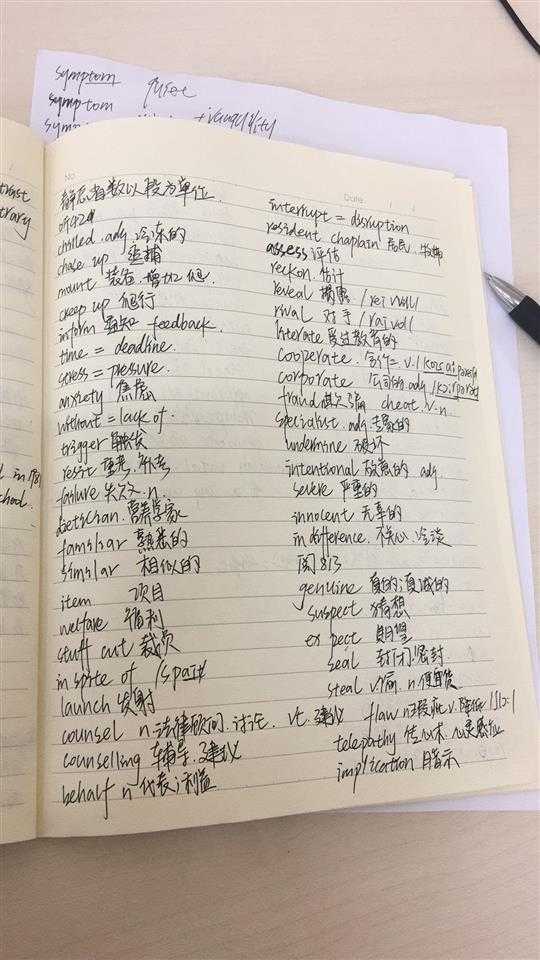 symptom quiet
symptom
symp
No
Date
以段为单位
听
chilled adj 冷冻的
chase up 追捕
mount 装备.增加
creep up 爬行
inform 通知 feedback.
time = deadline.
stress = pressure.
anxiety 焦虑
without = lack of
trigger 触发
resit 重考.补考
failure 失效.n
dietician.营养学家
familiar 熟悉的
similar 相似的
item 项目
welfare 福利
stuff cut 裁员
in spite of /spait/
launch 发射
counsel n 法律顾问.讨论. vt.建议
counselling 辅导.建议
behalf n 代表;利益
interrupt = disruption
resident chaplain 居民.牧师
assess 评估
reckon 估计
reveal 揭露
rival 对手
literate 受过教育的
cooperate.合作 v.
corporate 公司的.adj
fraud 欺骗 cheat v.n.
specialist.adj 专家的
undermine 破坏
intentional 故意的 adj
severe 严重的
innocent 无辜的
indifference.不关心.冷淡
阅
genuine 真的;真诚的
suspect 猜想
expect 期望
seal 封闭;密封
steal v.偷 n.便宜货
flaw n 瑕疵 v.
telepathy 传心术.心灵感应
implication 暗示
trast
trary
in 1981
chool.